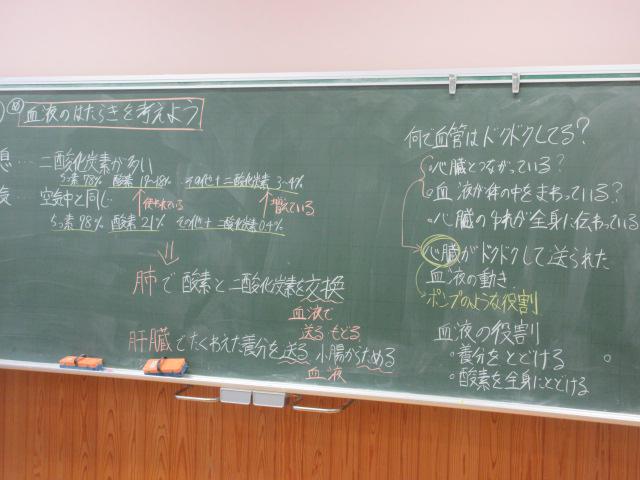 め 血液のはたらきを考えよう
息… 二酸化炭素が多い
ちっ素78% 酸素 17~18% その他+二酸化炭素 3~4%
使われている 増えている
空気中と同じ
ちっ素 98% 酸素 21% その他+二酸化炭素 04%
肺で酸素と二酸化炭素を交換
血液で
送る もどる
肝臓でたくわえた養分を送る 小腸がためる
血液
何で血管はドクドクしてる?
・心臓とつながっている?
・血液が体の中をまわっている?
・心臓のゆれが全身に伝わっている
心臓がドクドクして送られた
血液の動き
ポンプのような役割
血液の役割
・養分をとどける
・酸素を全身にとどける